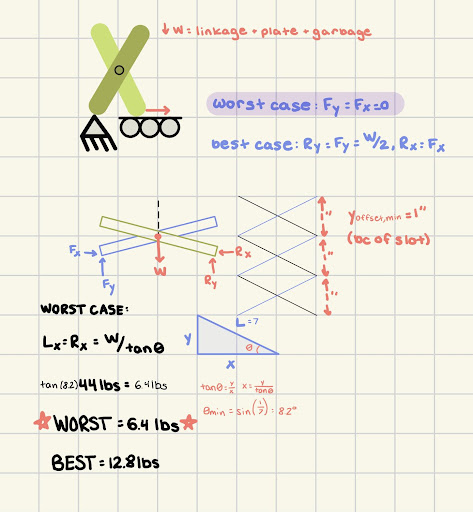 ↓ W = linkage + plate + garbage
worst case: Fy = Fx = 0
best case: Ry = Fy = W/2, Rx = Fx
yoffset,min = 1"
(bc of slot)
1"
1"
1"
Fx
Fy
W
Rx
Ry
WORST CASE:
Lx = Rx = W/tanθ
L = 7
y
θ
x
tan(8.2) 44 lbs = 6.4 lbs
tanθ = y/x x = y/tanθ
θmin = sin(1/7) = 8.2°
☆ WORST = 6.4 lbs ☆
BEST = 12.8 lbs